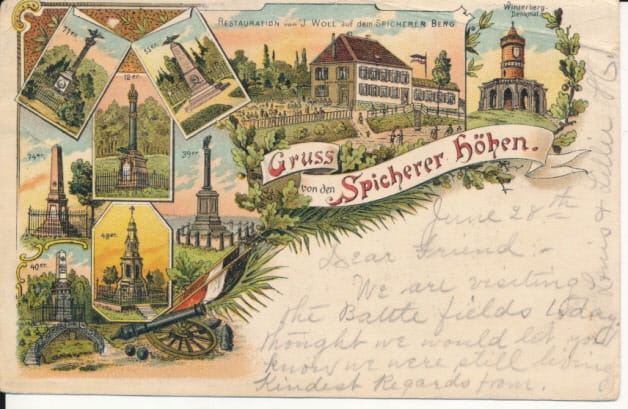 77er.
55er.
12er.
74er.
39er.
40er.
48er.
RESTAURATION von J. WOLL auf dem SPICHERER BERG
Winterberg-
Denkmal.
Gruss
von den Spicherer Höhen.
June 28th
Dear Friend:-
We are visiting
the Battle fields today
thought we would let you
know we were still living
Kindest Regards from.
& Lillie